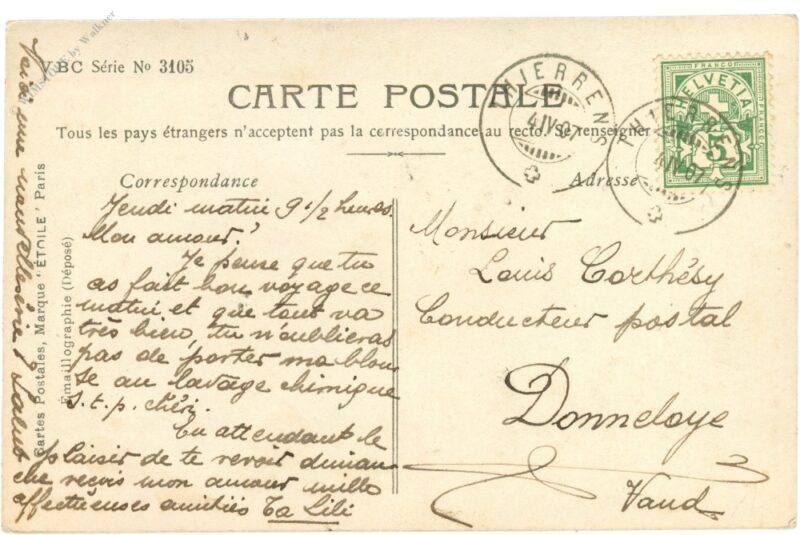 VBC Série No 3105
CARTE POSTALE
Tous les pays étrangers n'acceptent pas la correspondance au recto. Se renseigner
Correspondance
Adresse
Jeudi matin 9 1/2 heures.
Mon amour!
Je pense que tu
as fait bon voyage ce
matin et que tout va
très bien, tu n'oublieras
pas de porter ma blou
se au lavage chimique
s.t.p. chéri.
En attendant le
plaisir de te revoir diman
che reçois mon amour mille
affectueuses amitiés Ta Lili
Monsieur
Louis Corthésy
Conducteur postal
Donneloye
Vaud
Cartes Postales, Marque 'ÉTOILE' Paris
Émaillographie (Déposé)
THIERRENS
4.IV.07
THIERRENS
4.IV.07
FRANCO
HELVETIA
5
by Walkner